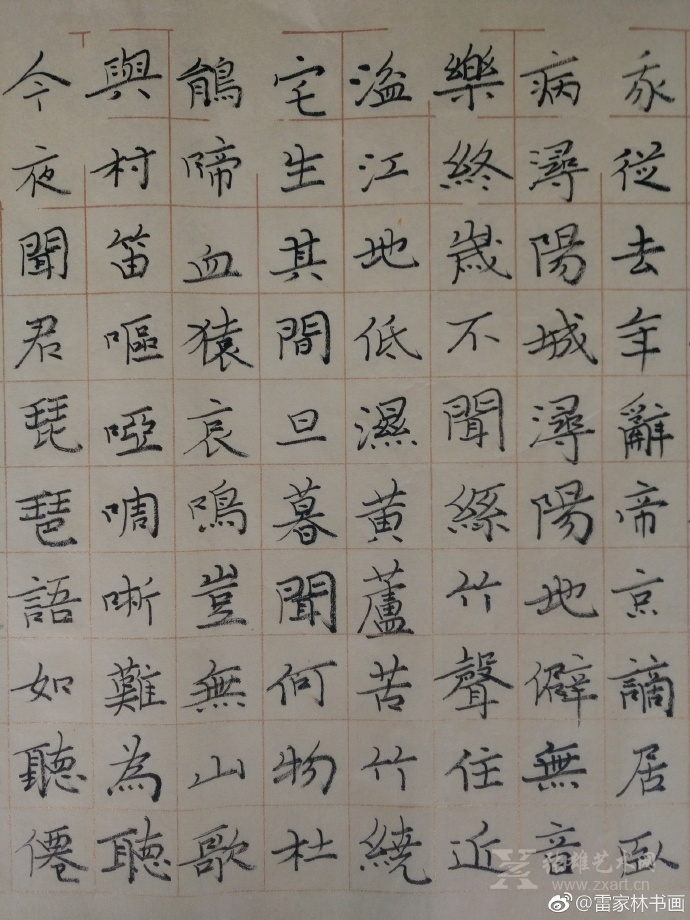 我從去年辭帝京謫居臥
病潯陽城潯陽地僻無音
樂終歲不聞絲竹聲住近
湓江地低濕黃蘆苦竹繞
宅生其間旦暮聞何物杜
鵑啼血猿哀鳴豈無山歌
與村笛嘔啞啁哳難為聽
今夜聞君琵琶語如聽僊
www.zxart.cn
@雷家林书画